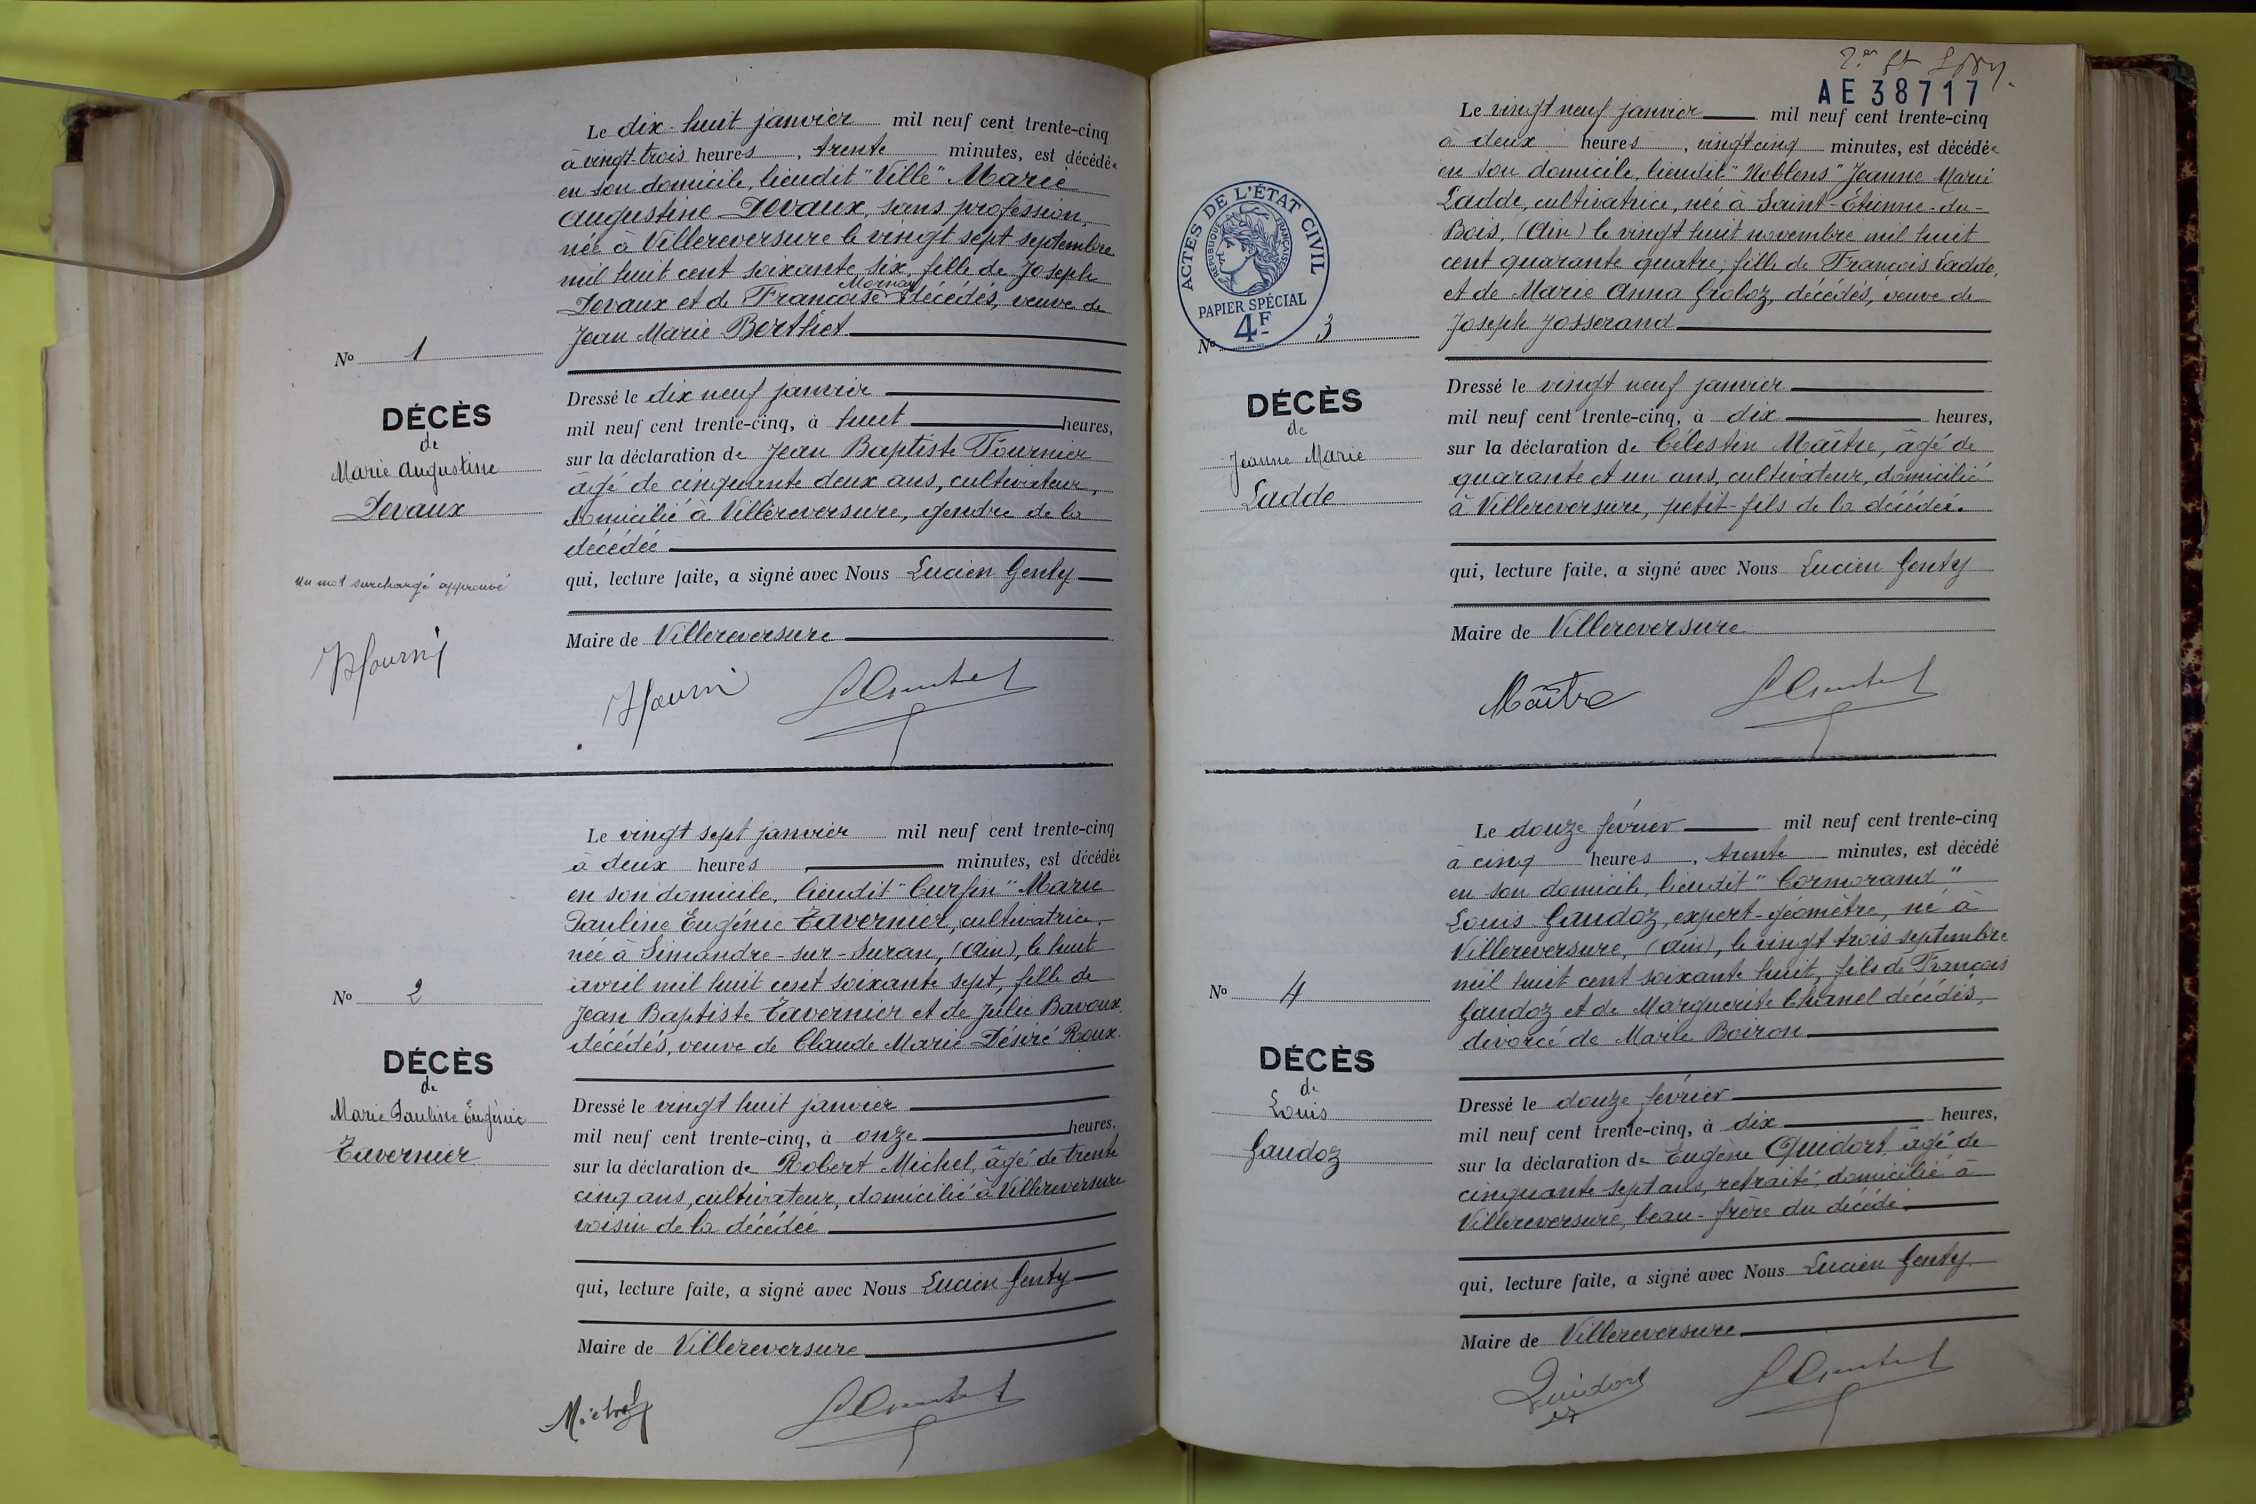 Le dix-huit janvier mil neuf cent trente-cinq
à vingt-trois heures, trente minutes, est décédée
en son domicile, lieudit "Ville" Marie
Augustine Devaux, sans profession,
née à Villereversure le vingt sept septembre
mil huit cent soixante six, fille de Joseph
Mornay
Devaux et de Françoise décédés, veuve de
Jean Marie Berthet
No 1
DÉCÈS
de
Marie Augustine
Devaux
un mot surchargé approuvé
Dressé le dix neuf janvier
mil neuf cent trente-cinq, à huit heures,
sur la déclaration de Jean Baptiste Fournier
âgé de cinquante deux ans, cultivateur,
domicilié à Villereversure, gendre de la
décédée
qui, lecture faite, a signé avec Nous Lucien Genty
Maire de Villereversure
Le vingt sept janvier mil neuf cent trente-cinq
à deux heures, minutes, est décédée
en son domicile, lieudit "Curfin" Marie
Pauline Eugénie Tavernier, cultivatrice,
née à Simandre-sur-Suran, (Ain), le huit
avril mil huit cent soixante sept, fille de
Jean Baptiste Tavernier et de Julie Bavoux,
décédés, veuve de Claude Marie Désiré Roux.
No 2
DÉCÈS
de
Marie Pauline Eugénie
Tavernier
Dressé le vingt huit janvier
mil neuf cent trente-cinq, à onze heures,
sur la déclaration de Robert Michel, âgé de trente
cinq ans, cultivateur, domicilié à Villereversure
voisin de la décédée
qui, lecture faite, a signé avec Nous Lucien Genty
Maire de Villereversure
Michel
AE 38717
Le vingt neuf janvier mil neuf cent trente-cinq
à deux heures, vingt cinq minutes, est décédée
en son domicile, lieudit "Noblens" Jeanne Marie
Ladde, cultivatrice, née à Saint-Étienne-du-
Bois, (Ain) le vingt huit novembre mil huit
cent quarante quatre, fille de François Ladde,
et de Marie Anna Groboz, décédés, veuve de
Joseph Josserand
ACTES DE L'ÉTAT CIVIL
RÉPUBLIQUE FRANÇAISE
PAPIER SPÉCIAL
4F
No 3
DÉCÈS
de
Jeanne Marie
Ladde
Dressé le vingt neuf janvier
mil neuf cent trente-cinq, à dix heures,
sur la déclaration de Célestin Maître, âgé de
quarante et un ans, cultivateur, domicilié
à Villereversure, petit-fils de la décédée.
qui, lecture faite, a signé avec Nous Lucien Genty
Maire de Villereversure
Maître
Le douze février mil neuf cent trente-cinq
à cinq heures, trente minutes, est décédé
en son domicile, lieudit "Cormorand"
Louis Gaudoz, expert-géomètre, né à
Villereversure, (Ain), le vingt trois septembre
mil huit cent soixante huit, fils de François
Gaudoz et de Marguerite Chanel décédés,
divorcé de Marie Boiron
No 4
DÉCÈS
de
Louis
Gaudoz
Dressé le douze février
mil neuf cent trente-cinq, à dix heures,
sur la déclaration de Eugène Quidort, âgé de
cinquante sept ans, retraité, domicilié à
Villereversure, beau-frère du décédé.
qui, lecture faite, a signé avec Nous Lucien Genty
Maire de Villereversure
Quidort